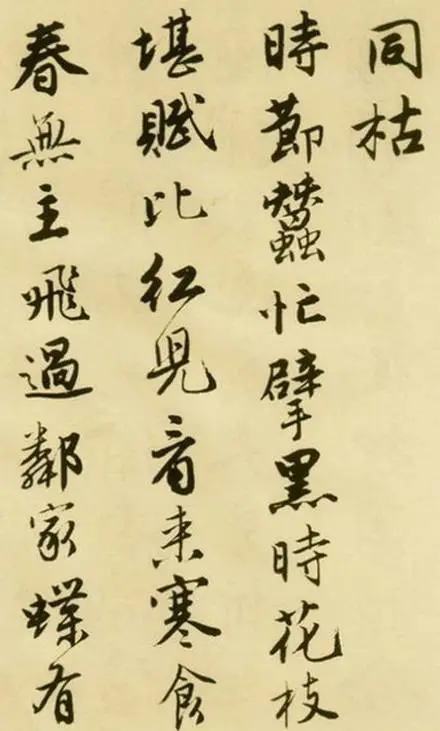 同枯
時節蠶忙擘黑時花枝
堪賦比紅兒看來寒食
春無主飛過鄰家蝶有